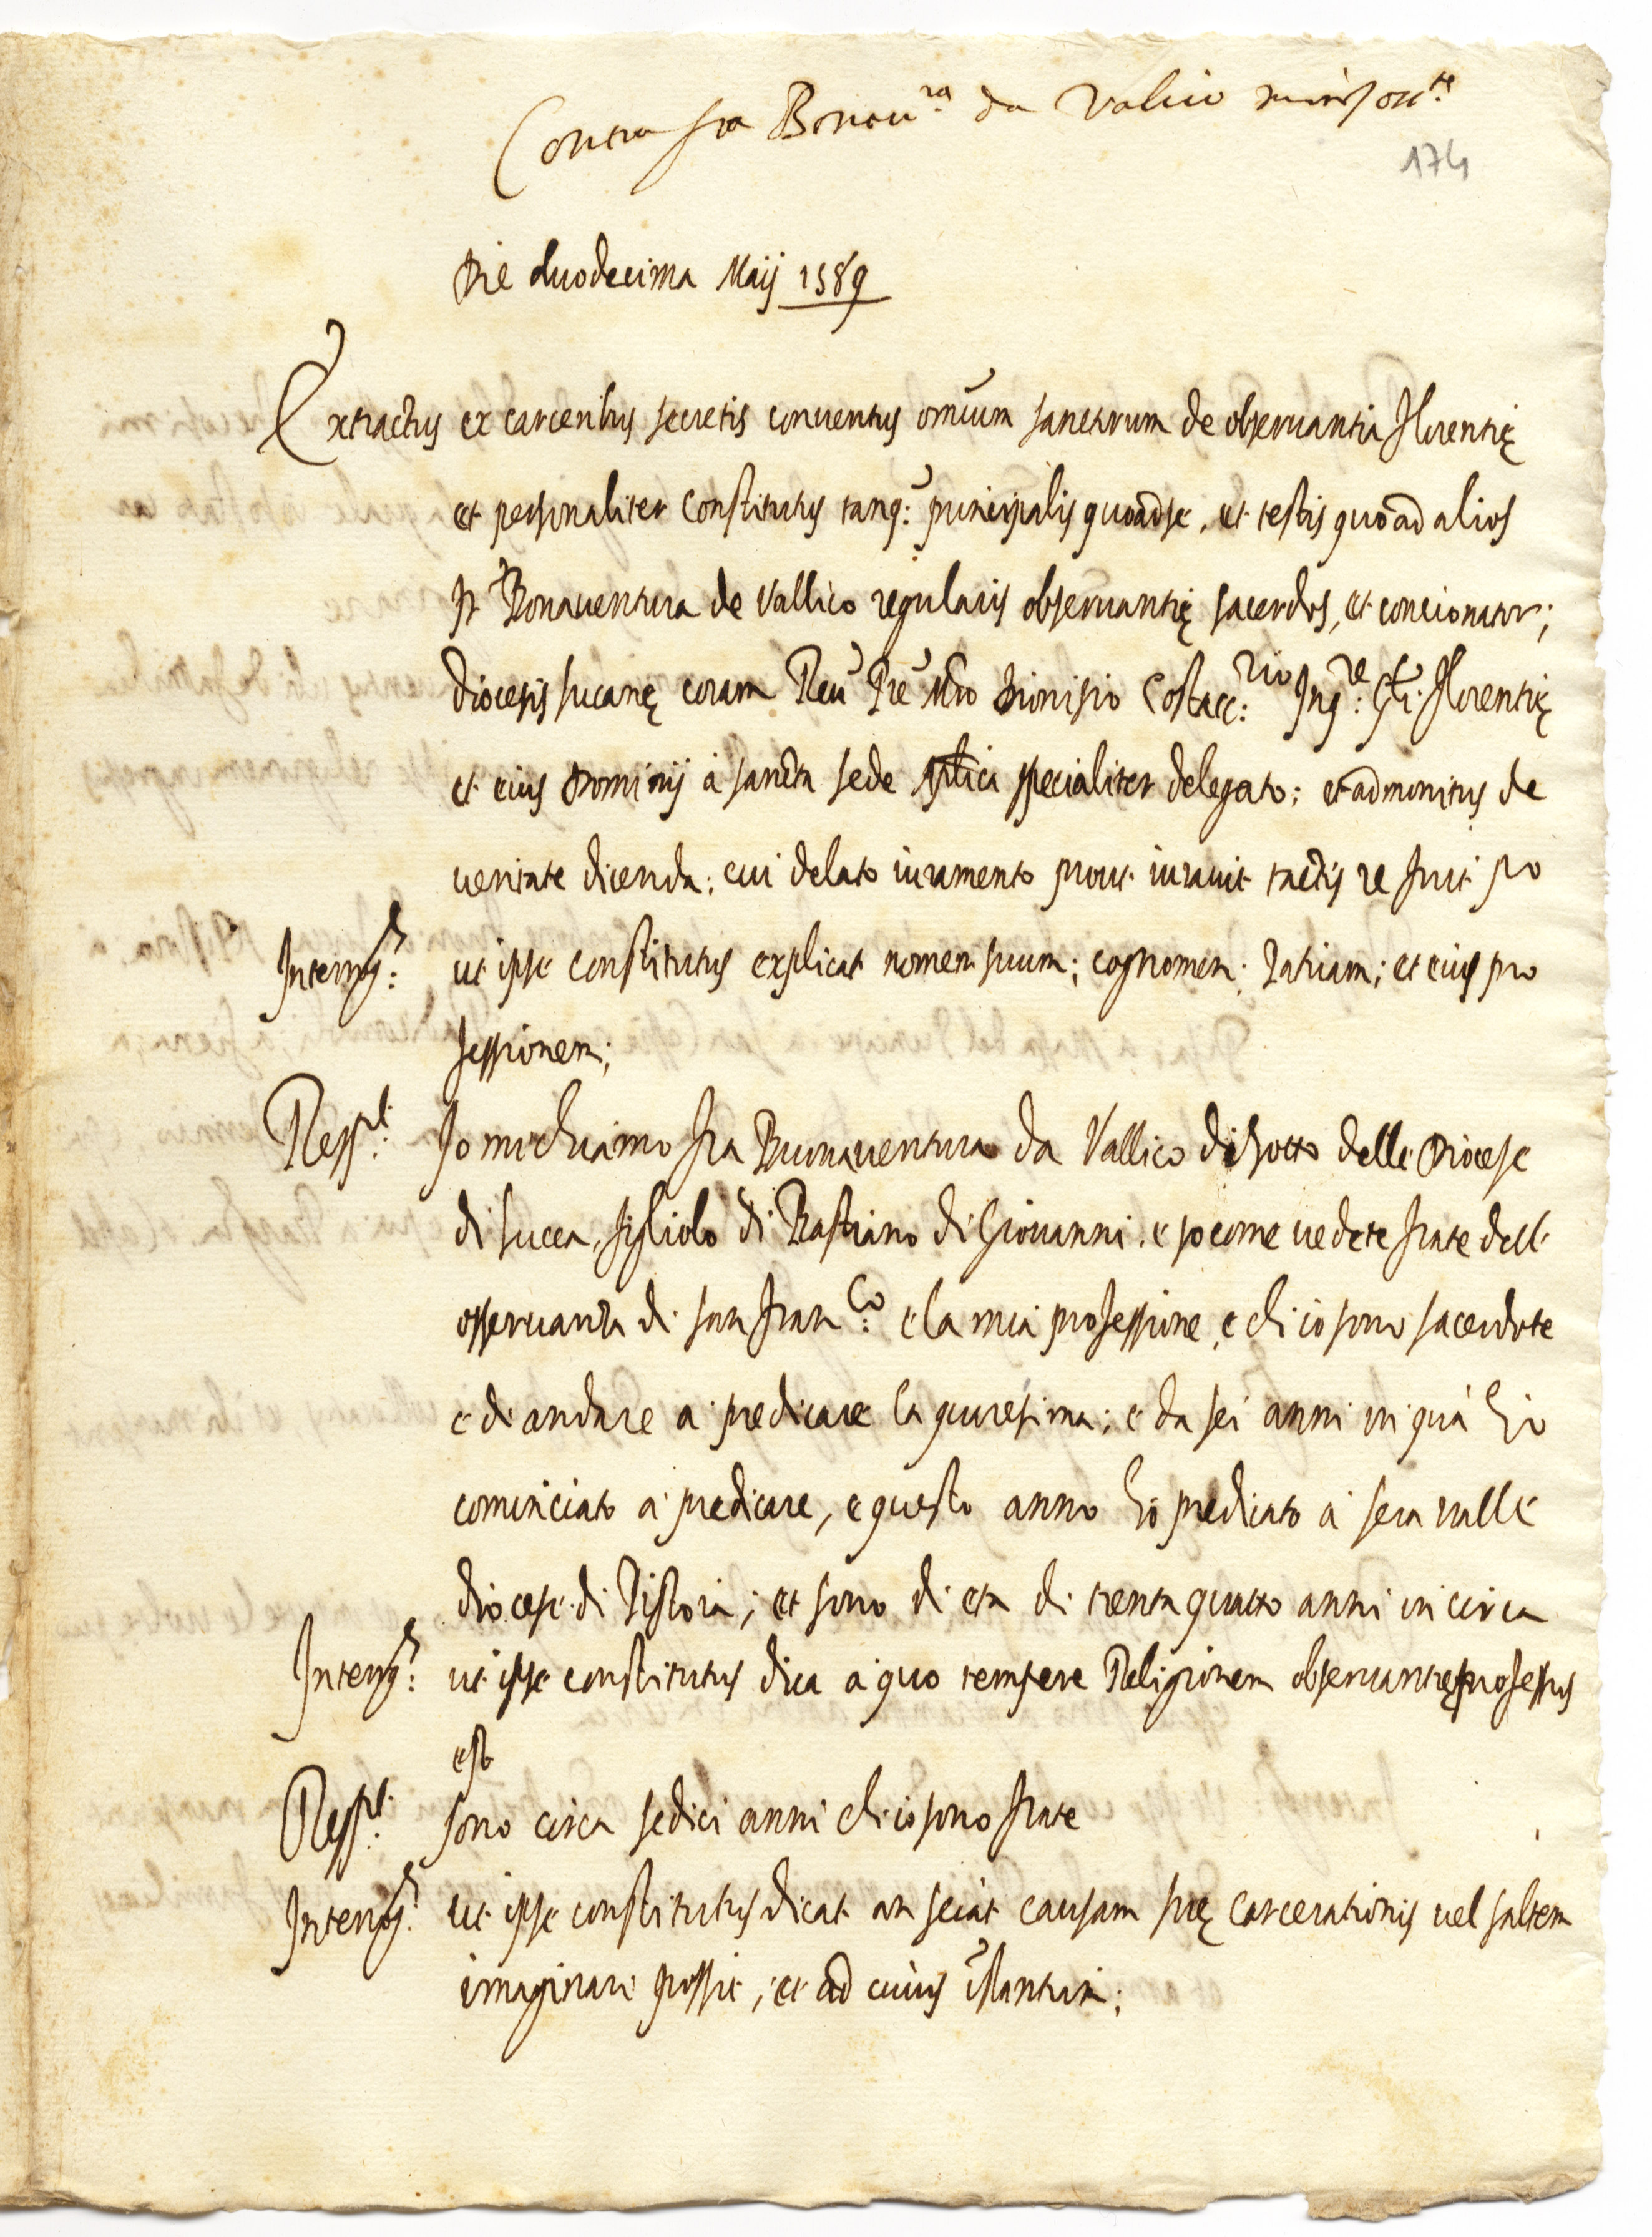 Contra fra Bonau.ra da Valico min: oss.te
174
Die duodecima Maij 1589
Extractus ex carceribus secretis conuentus omium sanctorum de obseruantia Florentię
et personaliter Constitutus tanq: principalis quoad se, et testis quo ad alios
fr Bonauentura de Vallico regularis obseruantię sacerdos, et concionator;
diocesis lucanę coram Reu Pre Mro Dionisio Costacc:rio Inq:re Gli Florentię
et eius Dominij à sancta sede Aplica specialiter delegato; et admonitus de
ueritate dicenda; cui delato iuramento prout iurauit tactis re fuit po
Interrog: ut ipse constitutus explicat nomen suum; cognomen; Patriam; et eius pro
fessionem;
Resp.t Io mi chiamo fra Buonauentura da Vallico di sotto delle Diocese
di lucca, figliolo di Bastiano di Giouanni. e so come uedete frate dell
osseruanza di san Fran:co e la mia professione, e ch io sono sacerdote
e di andare à predicare la quaresima; e da sei anni in quà ho
cominciato à predicare, e questo anno hò predicato à sera ualle
diocese di Pistoia; et sono di eta di trenta quatto anni in circa
Interrog: ut ipse constitutus dica à quo tempore Religionem obseruantię professus
est
Resp.t sono circa sedici anni ch io sono frate
Interrog: ut ipse constitutus dicat an sciat causam suę carcerationis uel saltem
imaginari possit, et ad cuius istantiam;